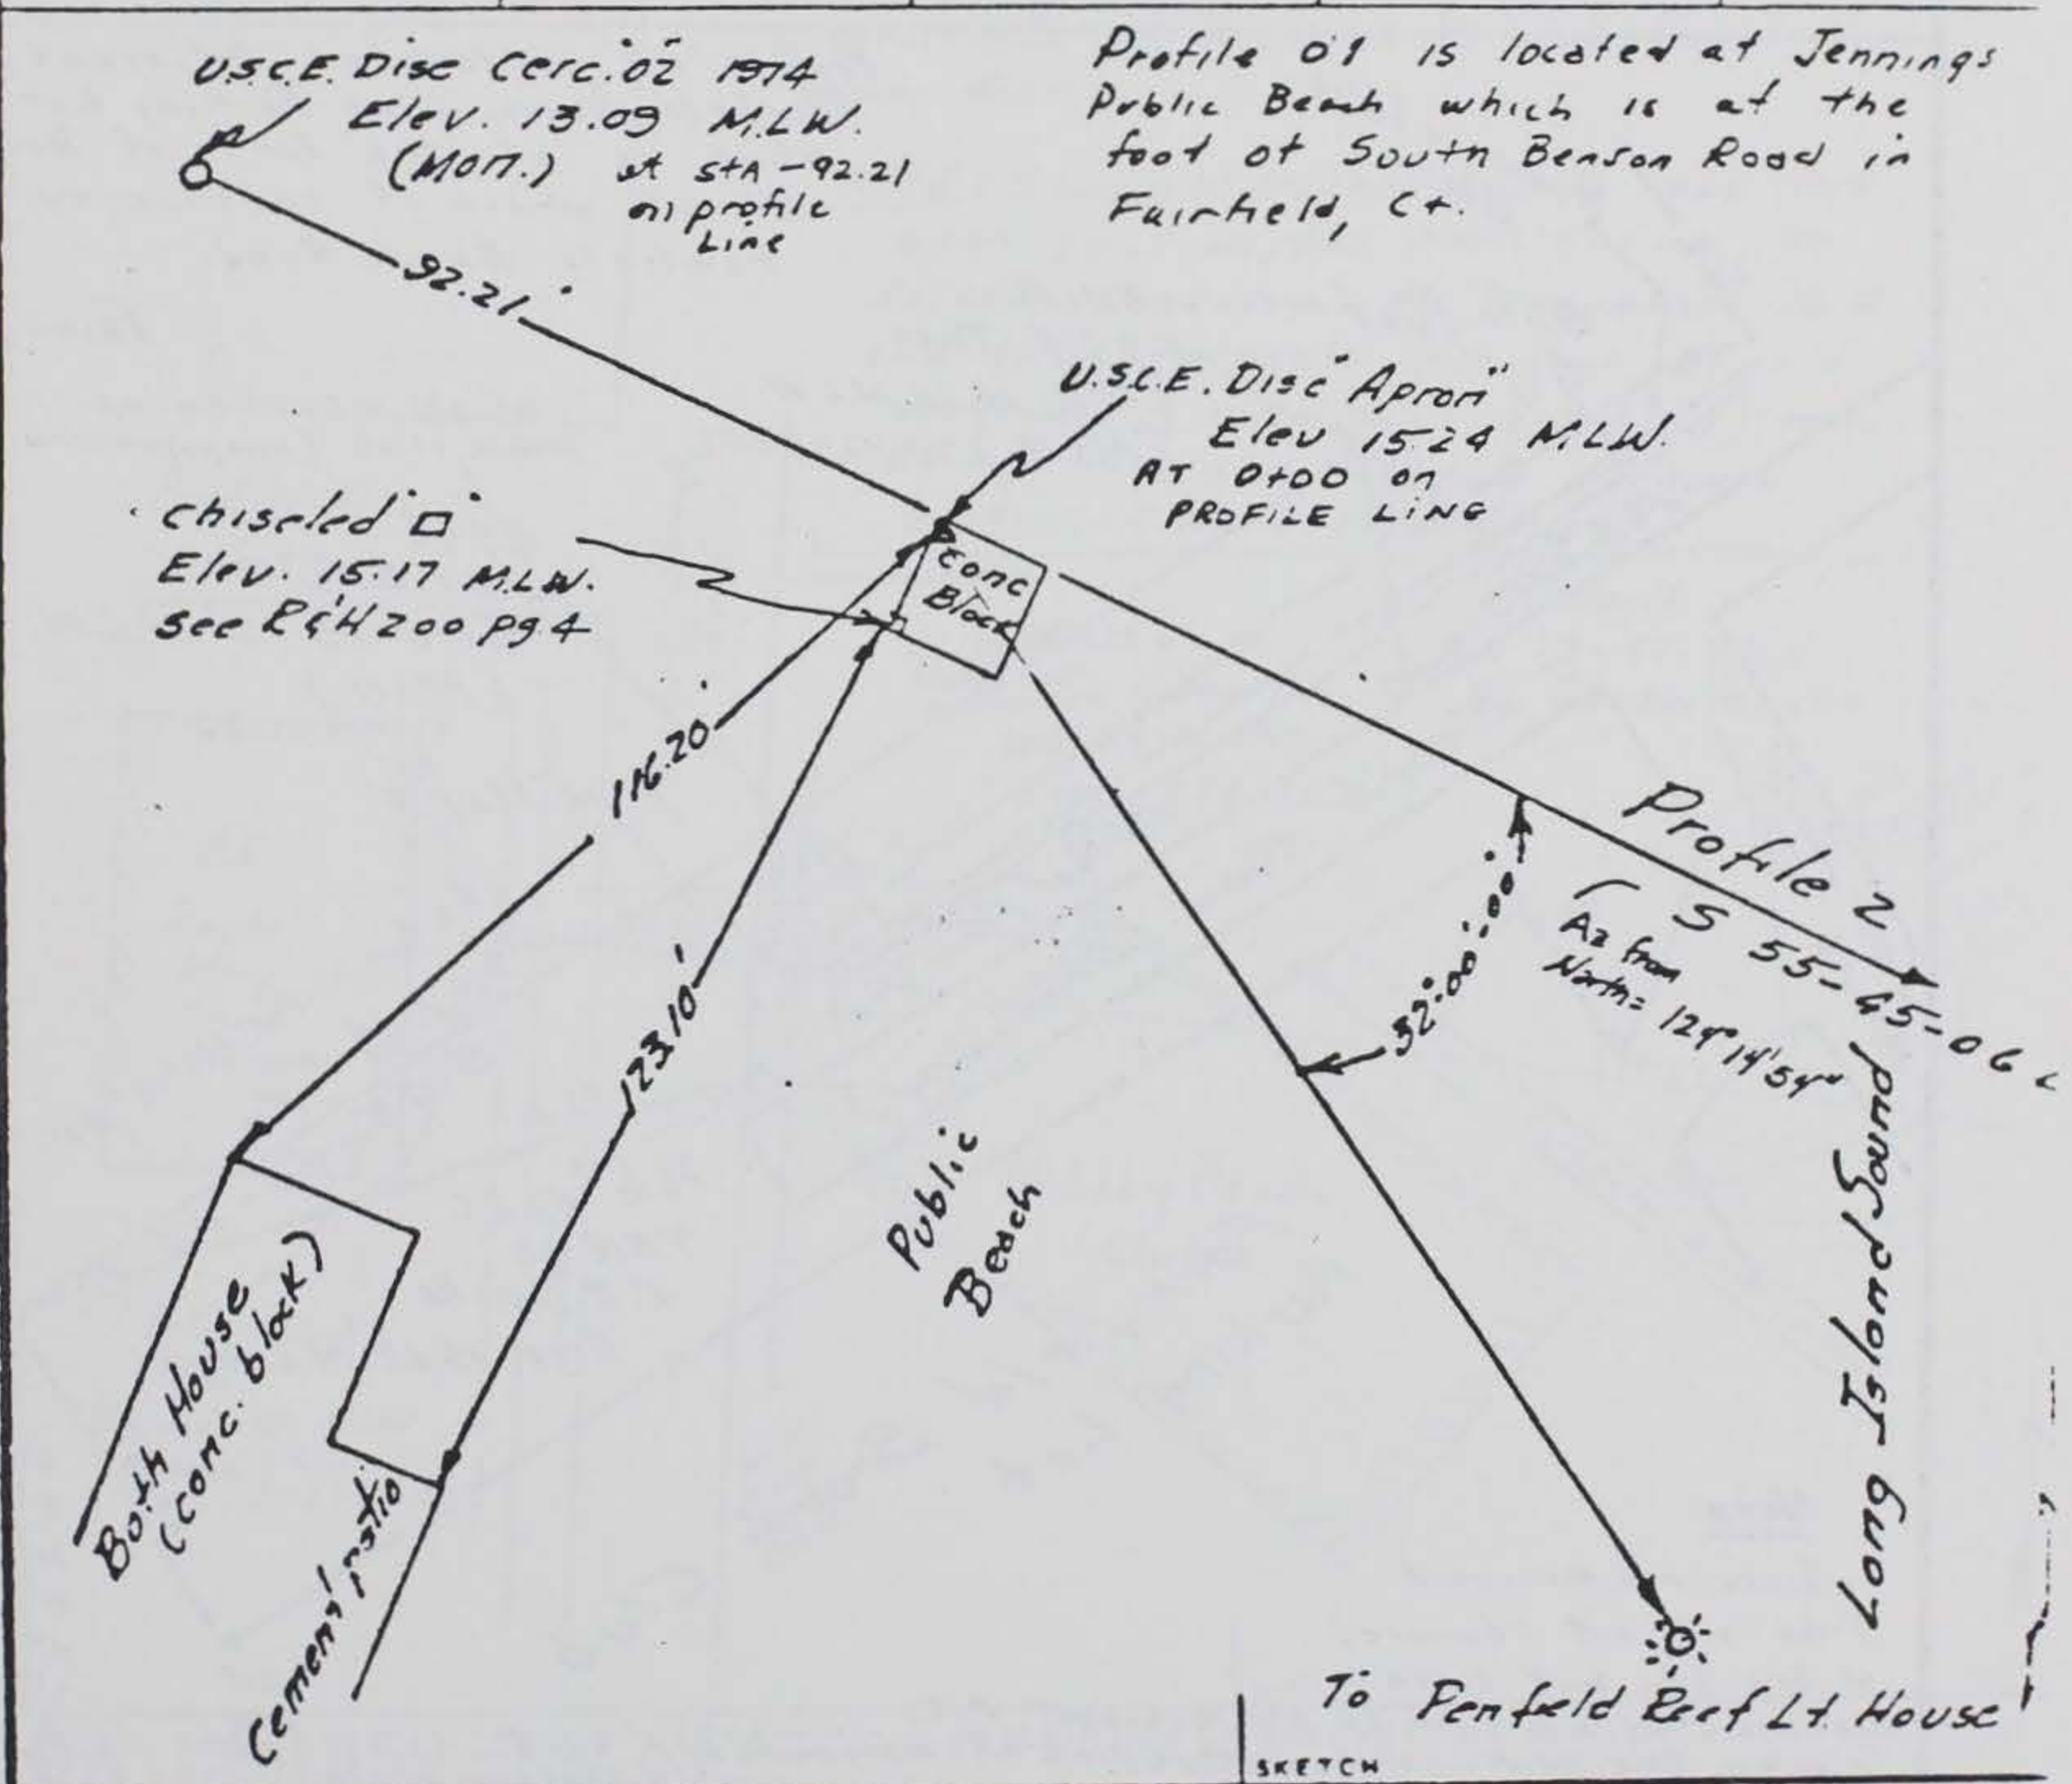 U.S.C.E. Disc Cerc."02" 1974
Elev. 13.09 M.L.W.
(Mon.) at StA -92.21
on profile
Line
Profile 01 is located at Jennings
Public Beach which is at the
foot of South Benson Road in
Fairfield, Ct.
92.21'
U.S.C.E. Disc "Apron"
Elev 15.24 M.L.W.
AT 0+00 on
PROFILE LINE
chiseled "□"
Elev. 15.17 M.L.W.
see R&H 200 pg 4
Conc
Block
116.20'
123.10'
Profile 2
S 55-45-06
Az from
North = 124° 14' 54"
32°-00'-00"
Public
Beach
Long Island Sound
Bath House
(conc. block)
Cement patio
To Penfield Reef Lt. House
SKETCH